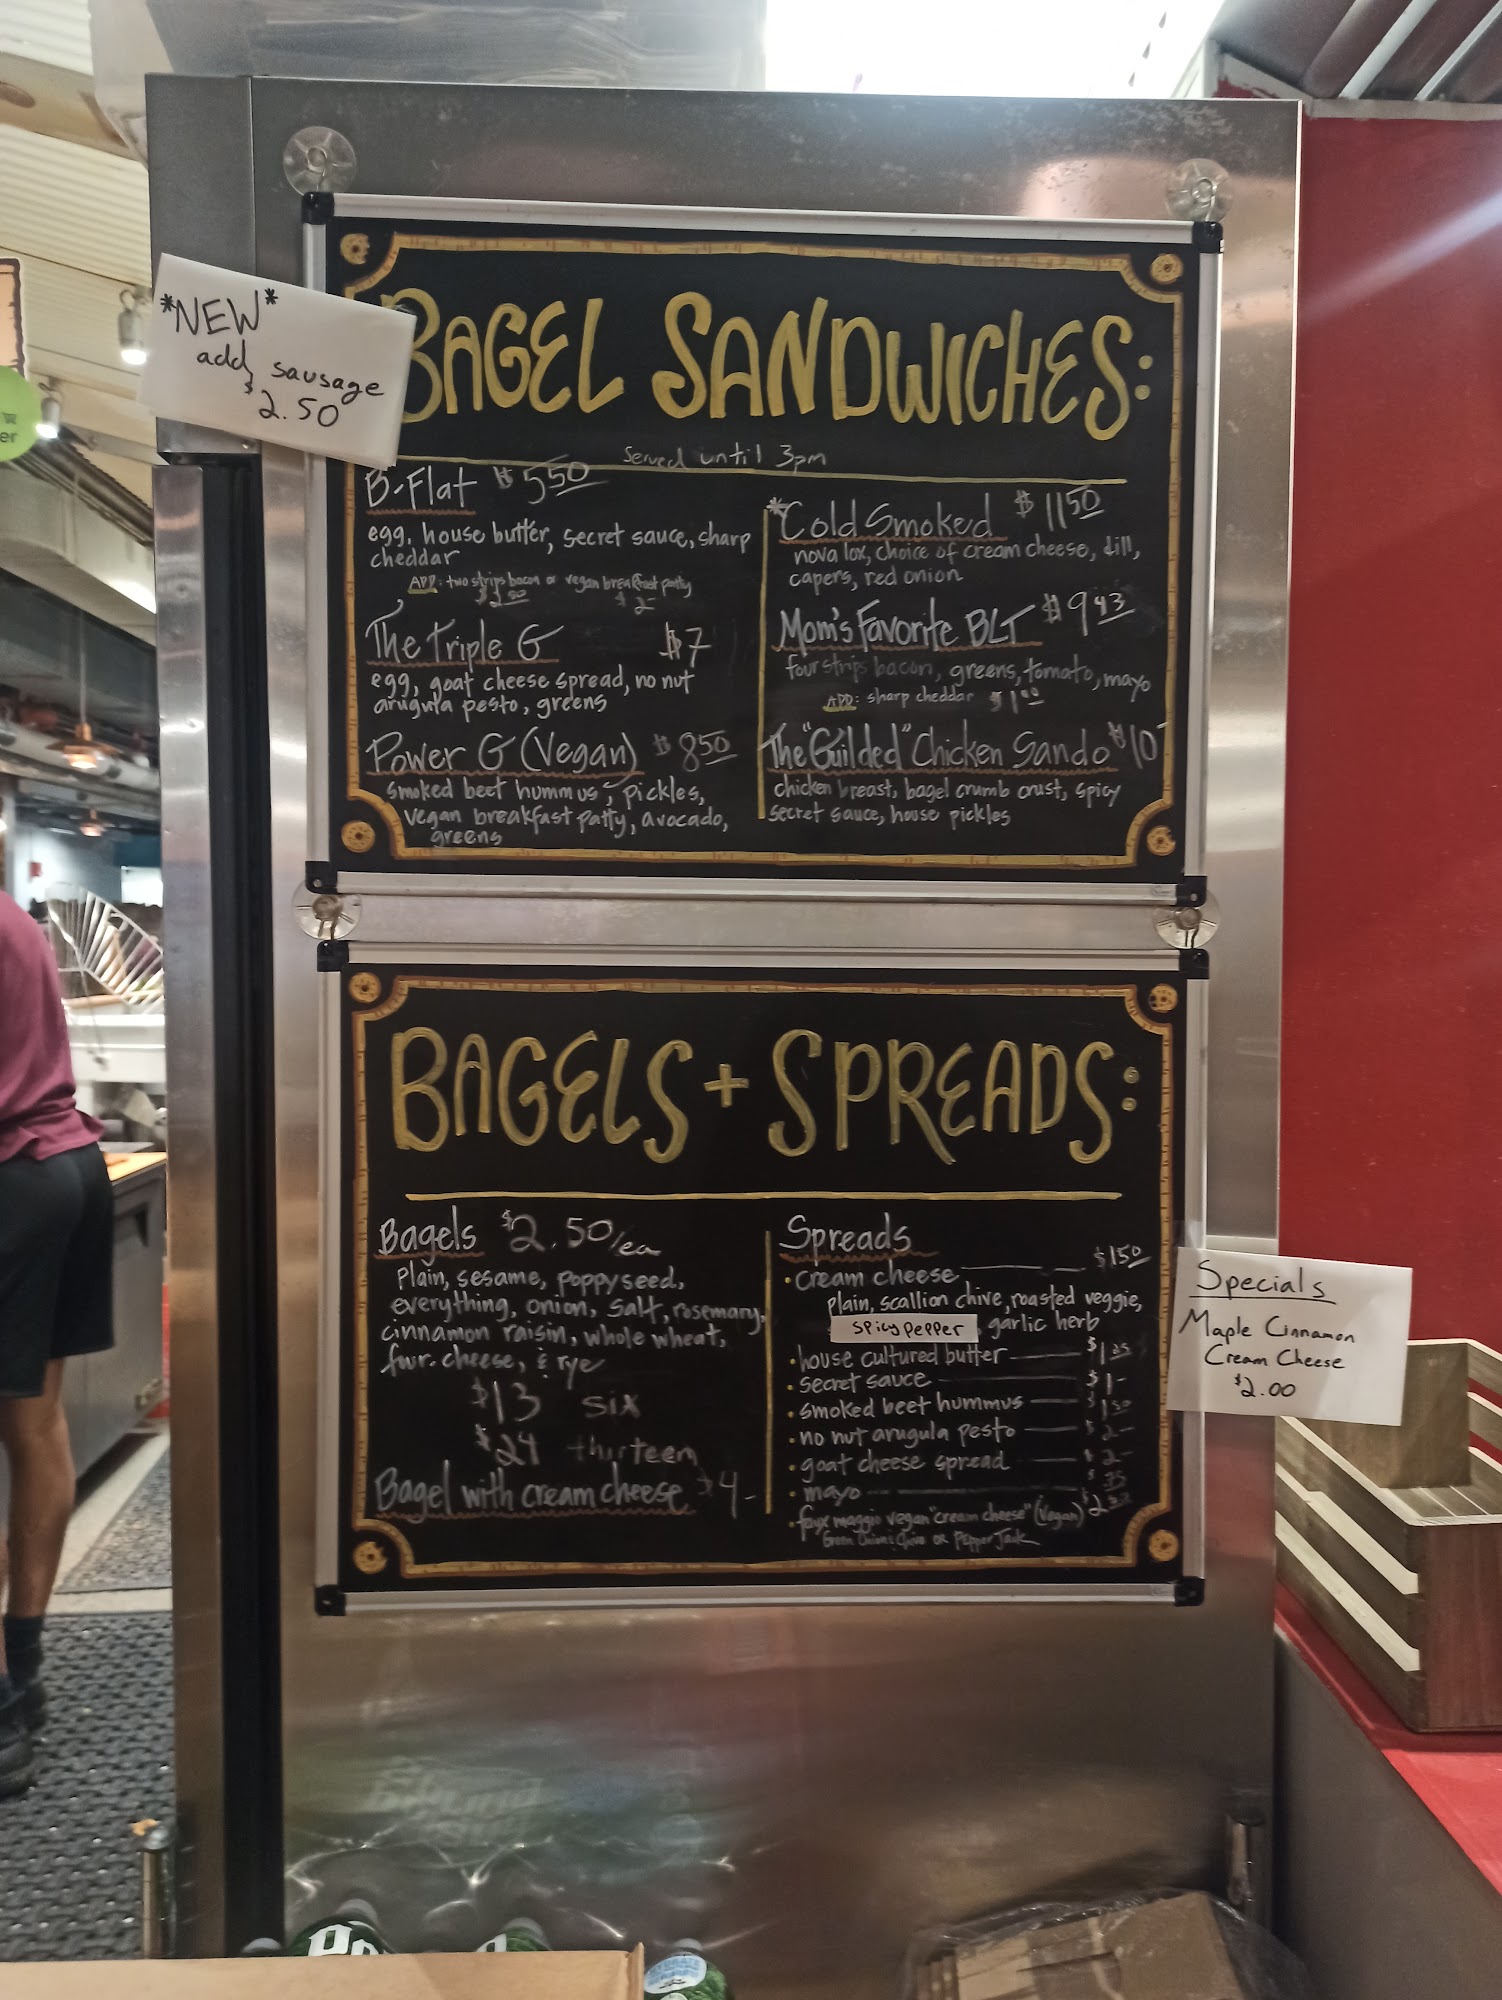 *NEW*
add sausage
$2.50
BAGEL SANDWICHES:
Served until 3pm
B-Flat $5.50
egg, house butter, secret sauce, sharp
cheddar
ADD: two strips bacon or vegan breakfast patty
$2-
The Triple G $7
egg, goat cheese spread, no nut
arugula pesto, greens
Power G (Vegan) $8.50
smoked beet hummus, pickles,
vegan breakfast patty, avocado,
greens
*Cold Smoked $11.50
nova lox, choice of cream cheese, dill,
capers, red onion
Mom's Favorite BLT $9.43
four strips bacon, greens, tomato, mayo
ADD: sharp cheddar $1.00
The "Guilded" Chicken Sando $10
chicken breast, bagel crumb crust, spicy
secret sauce, house pickles
BAGELS + SPREADS:
Bagels $2.50/ea
Plain, sesame, poppyseed,
everything, onion, salt, rosemary,
cinnamon raisin, whole wheat,
four cheese, & rye
$13 six
$24 thirteen
Bagel with cream cheese $4-
Spreads
• cream cheese $1.50
plain, scallion chive, roasted veggie,
spicy pepper, garlic herb
• house cultured butter $1.25
• secret sauce $1-
• smoked beet hummus $1.50
• no nut arugula pesto $2-
• goat cheese spread $2-
• mayo $.75
• faux maggio vegan "cream cheese" (Vegan) $2
Green Onion & Chive or Pepper Jack
Specials
Maple Cinnamon
Cream Cheese
$2.00
HYDRATE